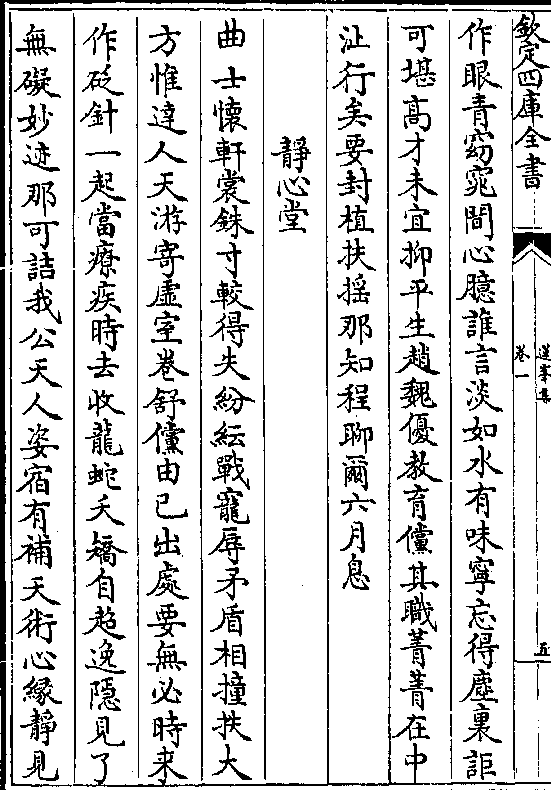 欽定四庫全書
蓮峯集
卷一
五
作眼青窈窕間心臆誰言淡如水有味寧忘得塵裏詎
可堪高才未宜抑平生趙魏優教育儻其職菁菁在中
沚行矣要封植扶搖那知程聊爾六月息
靜心堂
曲士懷軒裳銖寸較得失紛紜戰寵辱矛盾相撞抶大
方惟達人天游寄虛室卷舒儻由已出處要無必時来
作砭針一起當療疾時去收龍蛇夭矯自超逸隱見了
無礙妙迹那可詰我公天人姿宿有補天術心緣靜見